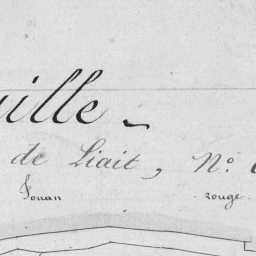 uille
de Liait, N°
Fouan rouge.